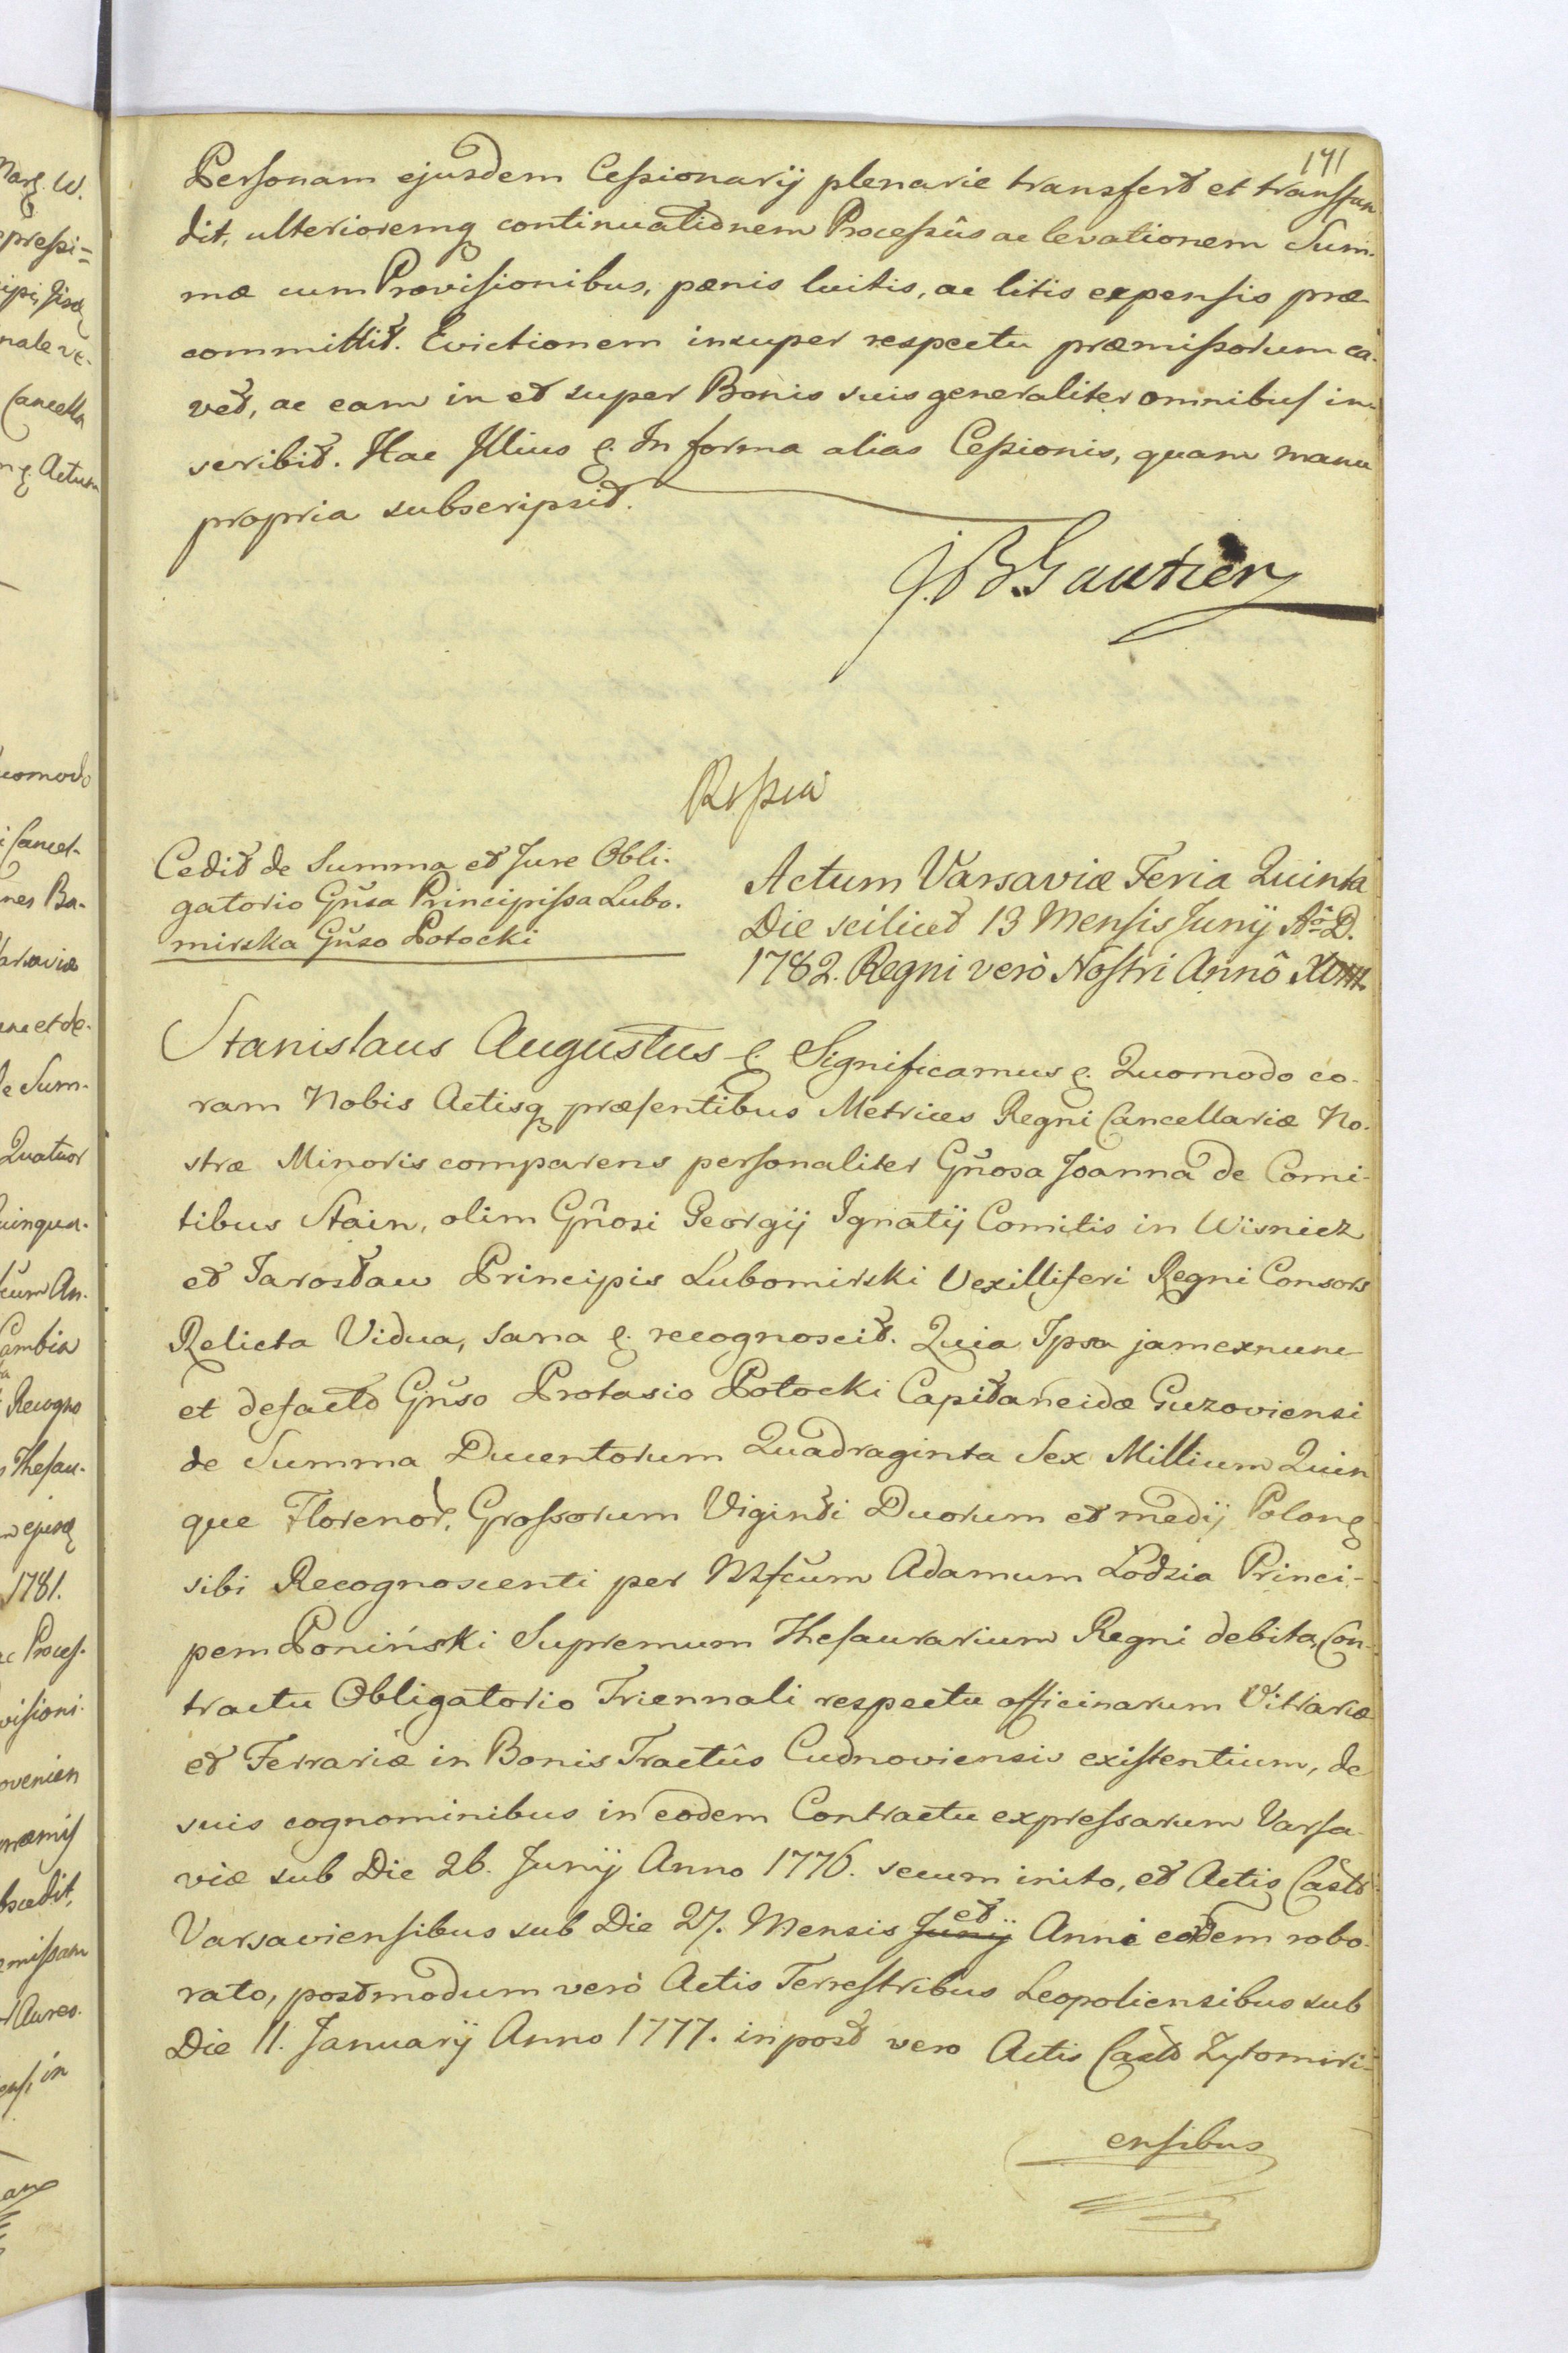 141
Personam ejusdem Cessionarij plenarie transfert et transfun
dit, ulterioremq continuationem Processûs ac levationem Sum-
mæ cum Provisionibus, pænis luitis, ac litis expensis præ
committit. Evictionem insuper respectu præmissorum ca-
vet, ac eam in et super Bonis suis generaliter omnibus in-
scribit. Hac Illius &. In forma alias Cessionis, quam manu
propria subscripsit.
J.B. Gautier
Cedit de Summa et Jure Obli-
gatorio Gñsa Principissa Lubo-
mirska Gñso Potocki
Actum Varsaviæ Feria Quinta
Die scilicet 13 Mensis Junij Aô D.
1782. Regni verò Nostri Annô XVIII.
Stanislaus Augustus &. Significamus &. Quomodo co-
ram Nobis Actisq præsentibus Metrices Regni Cancellariæ No-
stræ Minoris comparens personaliter Gñosa Joanna de Comi-
tibus Stain, olim Gñosi Georgij Ignatij Comitis in Wisnicz
et Jarosław Principis Lubomirski Vexilliferi Regni Consors
Relicta Vidua, sana &. recognoscit. Quia Ipsa jam exnunc
et defacto Gñso Protasio Potocki Capitaneidæ Guzoviensi
de Summa Ducentorum Quadraginta Sex Millium Quin
que Florenor, Grossorum Viginti Duorum et medij Polon
sibi Recognoscenti per Mfcum Adamum Łodzia Princi-
pem Poniński Supremum Thesaurarium Regni debita, Con-
tractu Obligatorio Triennali respectu officinarum Vitrariæ
et Ferrariæ in Bonis Tractûs Cudnoviensis existentium, de
suis cognominibus in eodem Contractu expressarum Varsa-
viæ sub Die 26. Junij Anno 1776. secum inito, et Actis Castr
Varsaviensibus sub Die 27. Mensis Junij et Anni eodem robo-
rato, postmodum verò Actis Terrestribus Leopoliensibus sub
Die 11. Januarij Anno 1777. inpost vero Actis Castr Zytomiri-
ensibus